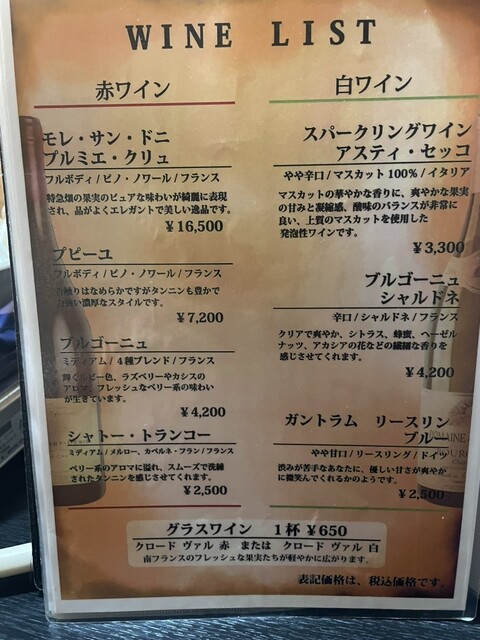 WINE LIST
赤ワイン
モレ・サン・ドニ
プルミエ・クリュ
フルボディ/ピノ・ノワール/フランス
特急畑の果実のピュアな味わいが綺麗に表現
され、品がよくエレガントで美しい逸品です。
¥16,500
プピーユ
フルボディ/ピノ・ノワール/フランス
触りはなめらかですがタンニンも豊かで
濃厚なスタイルです。
¥7,200
ブルゴーニュ
ミディアム/4種ブレンド/フランス
輝くルビー色、ラズベリーやカシスの
アロマ、フレッシュなベリー系の味わい
が生きています。
¥4,200
シャトー・トランコー
ミディアム/メルロー、カベルネ・フラン/フランス
ベリー系のアロマに溢れ、スムーズで洗練
されたタンニンを感じさせてくれます。
¥2,500
白ワイン
スパークリングワイン
アスティ・セッコ
やや辛口/マスカット100%/イタリア
マスカットの華やかな香りに、爽やかな果実
の甘みと凝縮感、酸味のバランスが非常に
良い、上質のマスカットを使用した
発泡性ワインです。
¥3,300
ブルゴーニュ
シャルドネ
辛口/シャルドネ/フランス
クリアで爽やか、シトラス、蜂蜜、ヘーゼル
ナッツ、アカシアの花などの繊細な香りを
感じさせてくれます。
¥4,200
ガントラム リースリン
ブル
やや甘口/リースリング/ドイツ
渋みが苦手なあなたに、優しい甘さが爽やか
に微笑んでくれるかのようです。
¥2,500
グラスワイン 1杯 ¥650
クロード ヴァル 赤 または クロード ヴァル 白
南フランスのフレッシュな果実たちが軽やかに広がります。
表記価格は、税込価格です。